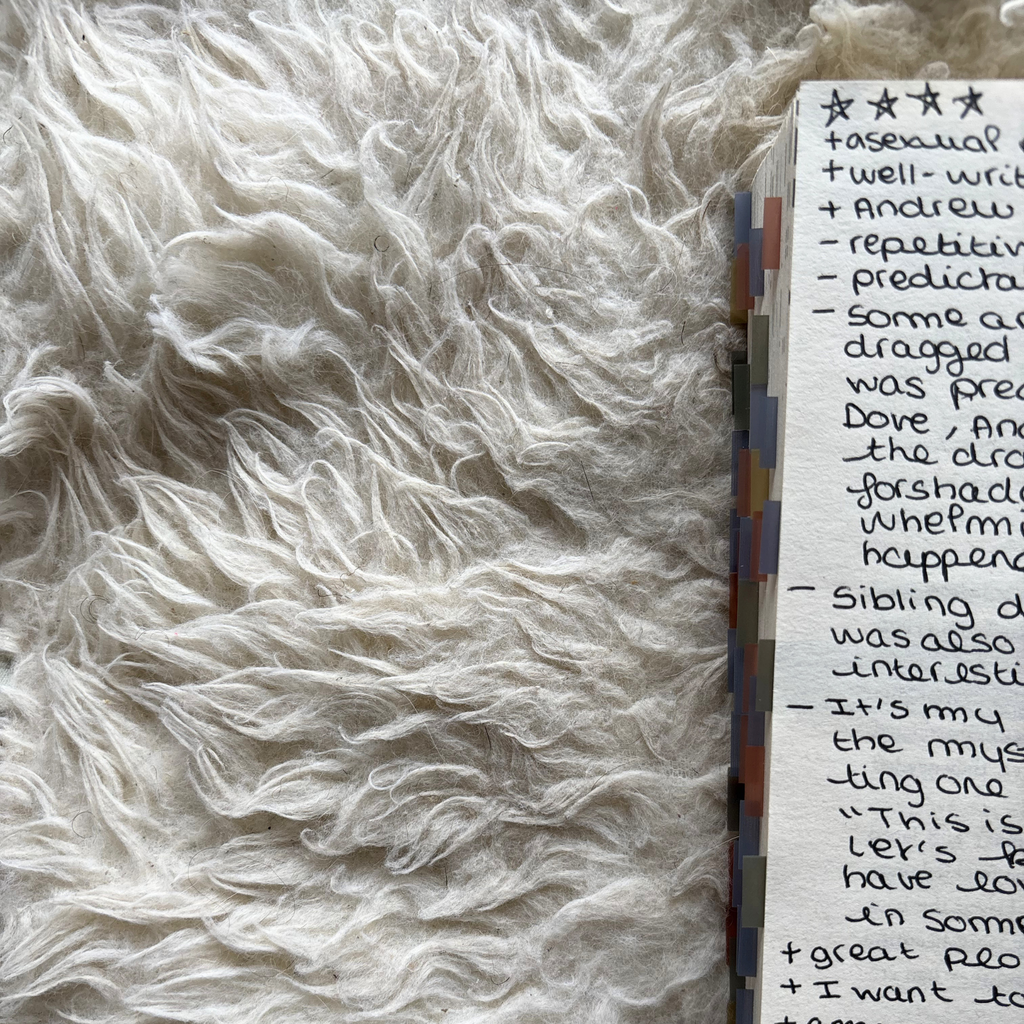 ☆ ☆ ☆ ☆
+ asexual
+ well-writ
+ Andrew
- repetitiv
- predicta
- Some ar
dragged
was prec
Dove, And
the dra
forshado
whelmi
happene
- Sibling d
was also
interesti
- It's my
the mys
ting one
"This is
Let's
have lov
in some
+ great peo
+ I want to